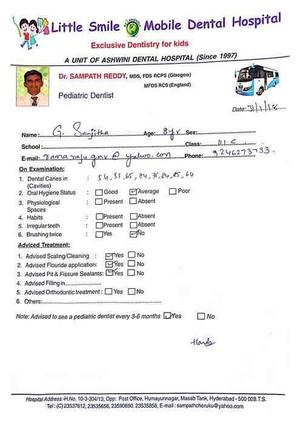 Little Smile Mobile Dental Hospital
Exclusive Dentistry for kids
A UNIT OF ASHWINI DENTAL HOSPITAL (Since 1997)
Dr. SAMPATH REDDY, MDS, FDS RCPS (Glasgow)
MFDS RCS (England)
Pediatric Dentist
Date:
Name: G. Sanjitha Age: 8yr Sex:
School: Class: III C
E-mail: Phone: 9246273733
On Examination:
1. Dental Caries in : 54, 55, 65, 74, 75, 84, 85, 64
(Cavities)
2. Oral Hygiene Status : Good Average Poor
3. Physiological : Present Absent
Spaces
4. Habits : Present Absent
5. Irregular teeth : Present Absent
6. Brushing twice : Yes No
Adviced Treatment:
1. Advised Scaling/Cleaning : Yes No
2. Advised Flouride application: Yes No
3. Advised Pit & Fissure Sealants: Yes No
4. Advised Filling in
5. Advised Orthodontic treatment : Yes No
6. Others:
Note: Advised to see a pediatric dentist every 3-6 months Yes No
Hospital Address:-H.No. 10-3-304/13, Opp: Post Office, Humayunnagar, Masab Tank, Hyderabad - 500 028 T.S.
Tel: (C) 23537612, 23535656, 23590690, 23535858, E-mail : sampathcheruku@yahoo.com